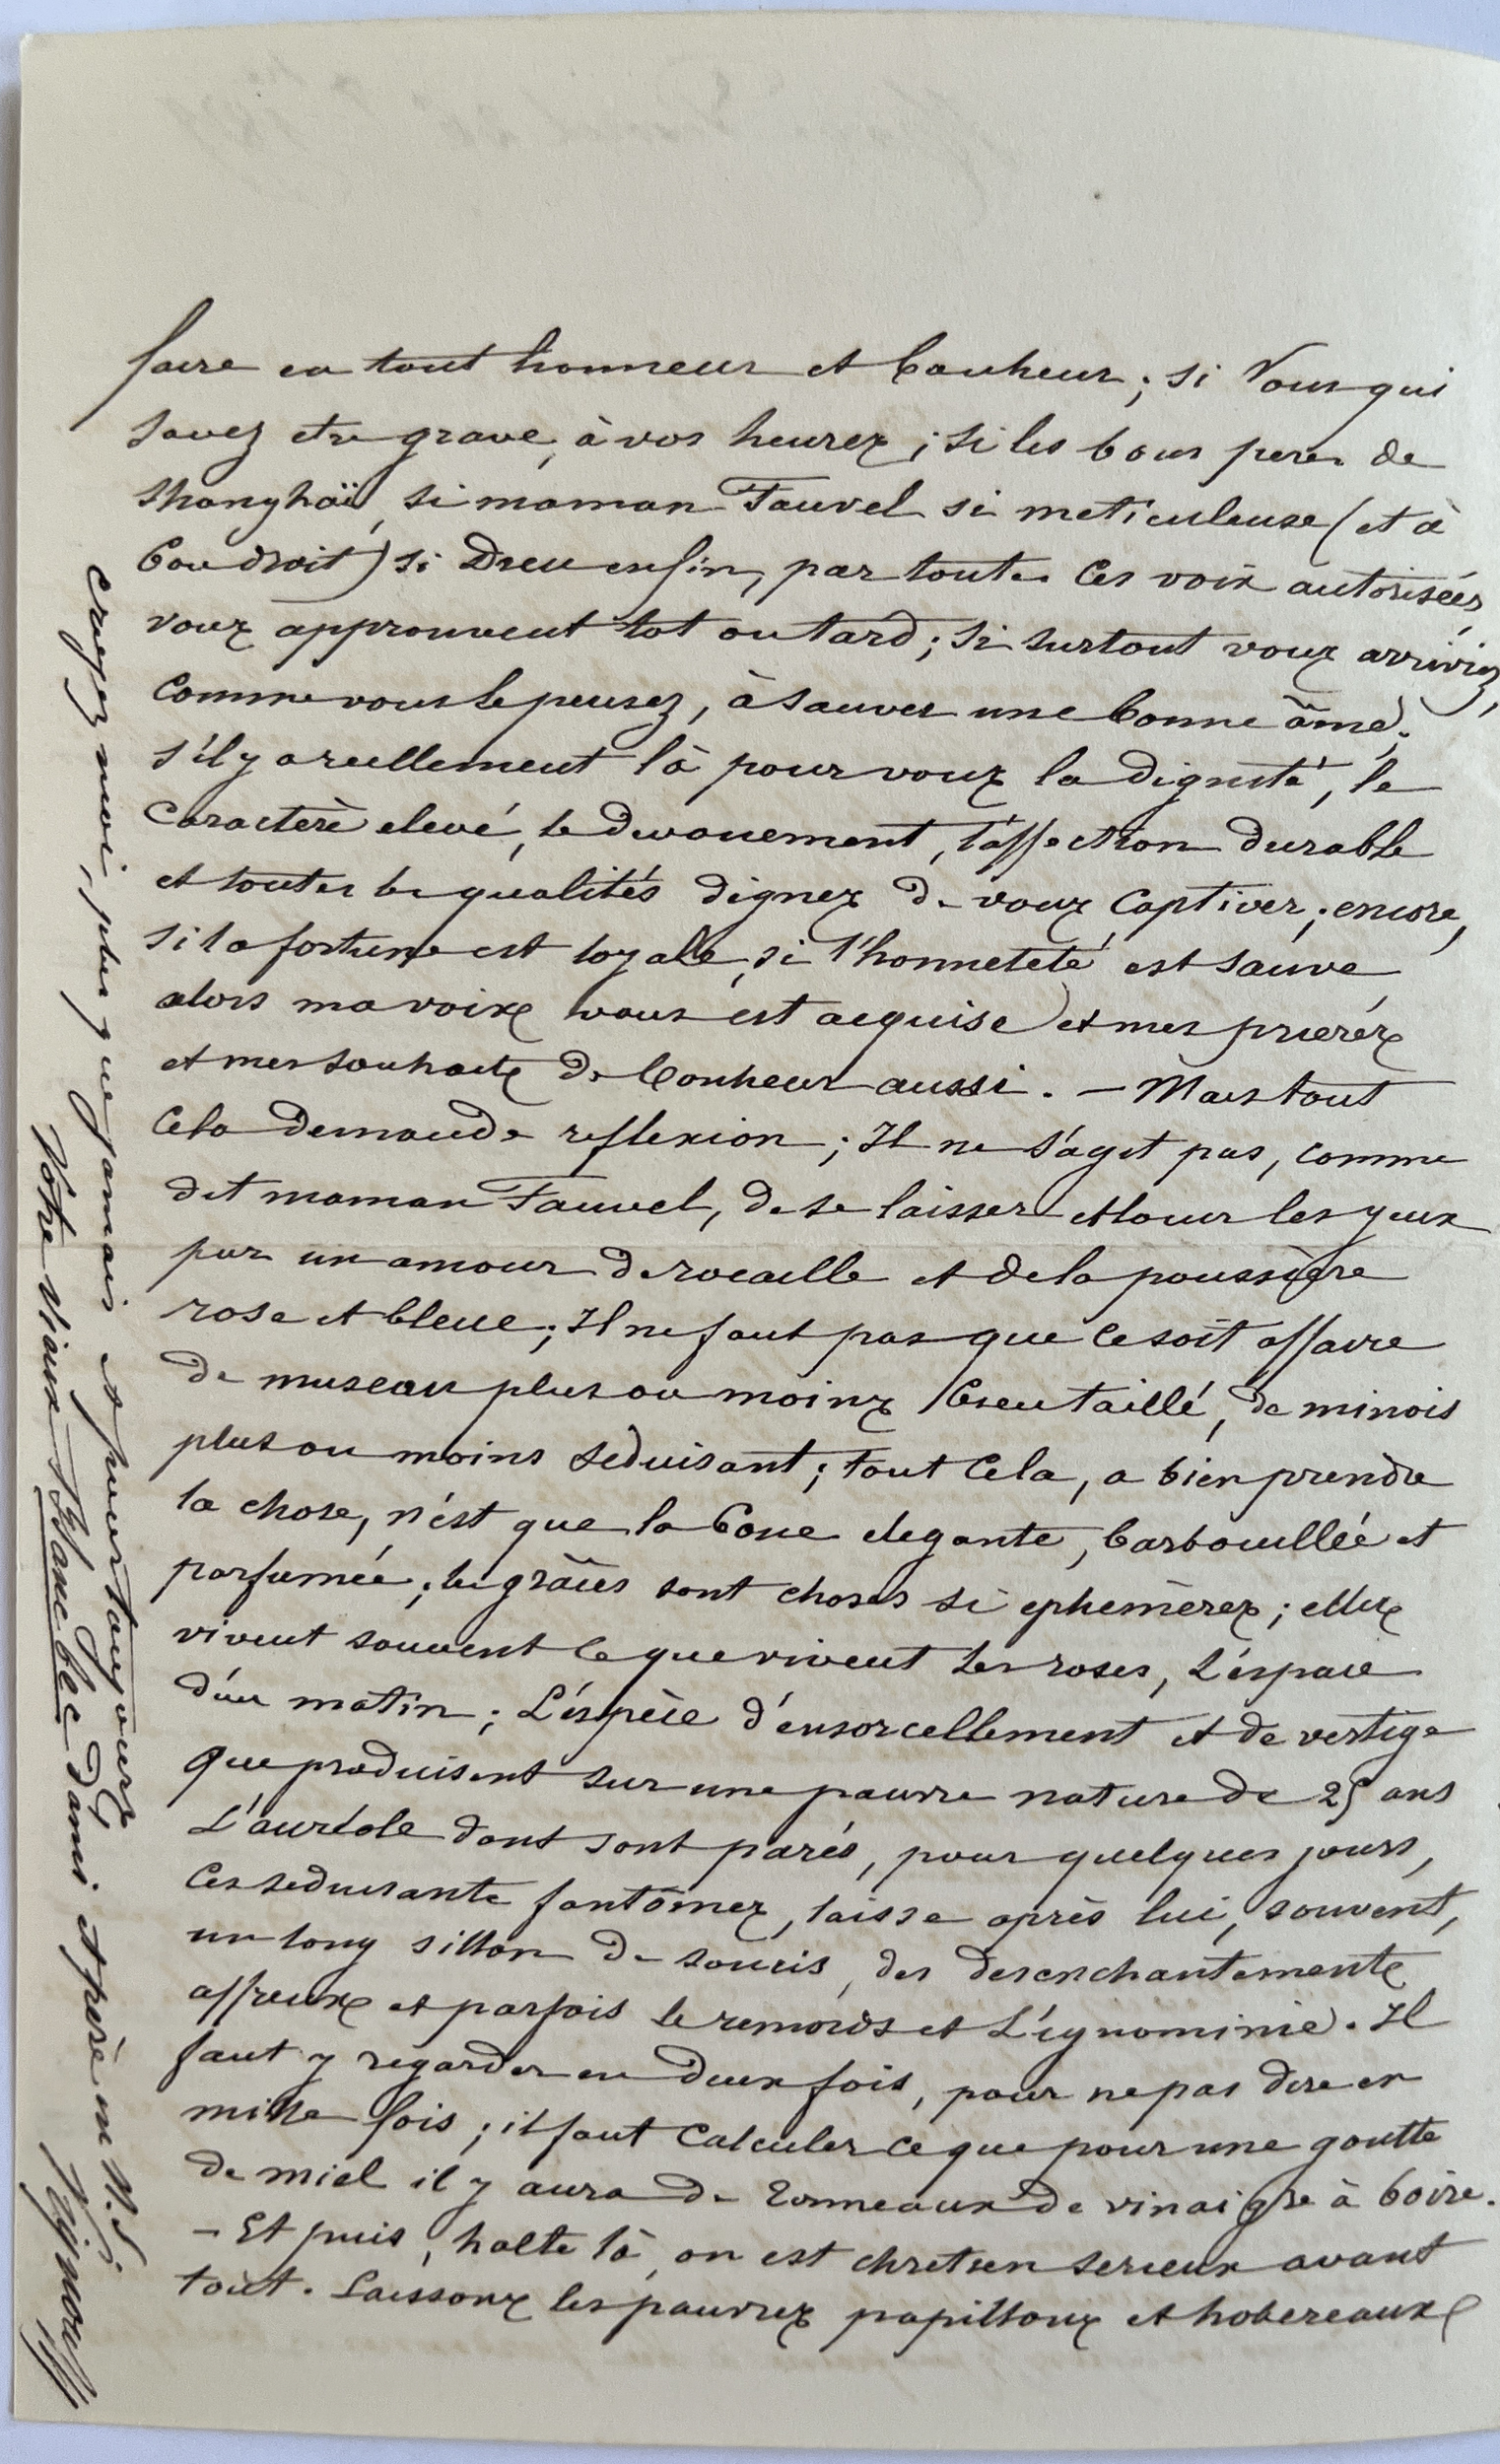 faire en tout honneur et bonheur ; si Vous qui
savez etre grave, à vos heures ; si les bons peres de
Shanghaï, si maman Fauvel si meticuleuse (et à
bon droit) si Dieu enfin, par toutes ces voix autorisées,
vous approuvent tot ou tard ; si surtout vous arriviez,
comme vous le pensez, à sauver une bonne âme ;
s'il y a reellement là pour vous la dignité, le
caractère elevé, le devouement, l'affection durable
et toutes les qualités dignes de vous captiver ; encore,
si la fortune est loyale, si l'honneteté est sauve
alors ma voix vous est acquise et mes prieres
et mes souhaits de bonheur aussi. — Mais tout
cela demande reflexion ; Il ne s'agit pas, comme
dit maman Fauvel, de se laisser eblouir les yeux
par un amour de rocaille et de la poussière
rose et bleue ; Il ne faut pas que ce soit affaire
de museau plus ou moins bien taillé, de minois
plus ou moins seduisant ; tout cela, a bien prendre
la chose, n'est que la boue elegante, barbouillée et
parfumée ; les grâces sont choses si ephemères ; elles
vivent souvent ce que vivent les roses, L'espace
d'un matin ; L'éspèce d'ensorcellement et de vertige
que produisent sur une pauvre nature de 25 ans
L'auréole dont sont parés, pour quelques jours,
ces seduisants fantômes, laisse après lui, souvent,
un long sillon de soucis, des desenchantements
affreux et parfois le remords et L'ignominie. Il
faut y regarder en deux fois, pour ne pas dire en
mille fois ; il faut calculer ce que pour une goutte
de miel il y aura de tonneaux de vinaigre à boire.
— Et puis, halte là, on est chretien serieux avant
tout. Laissons les pauvres papillons et hobereaux
croyez moi, plus que jamais et pour toujours
Votre vieux Blanc bec d'ami et frère en N.S.